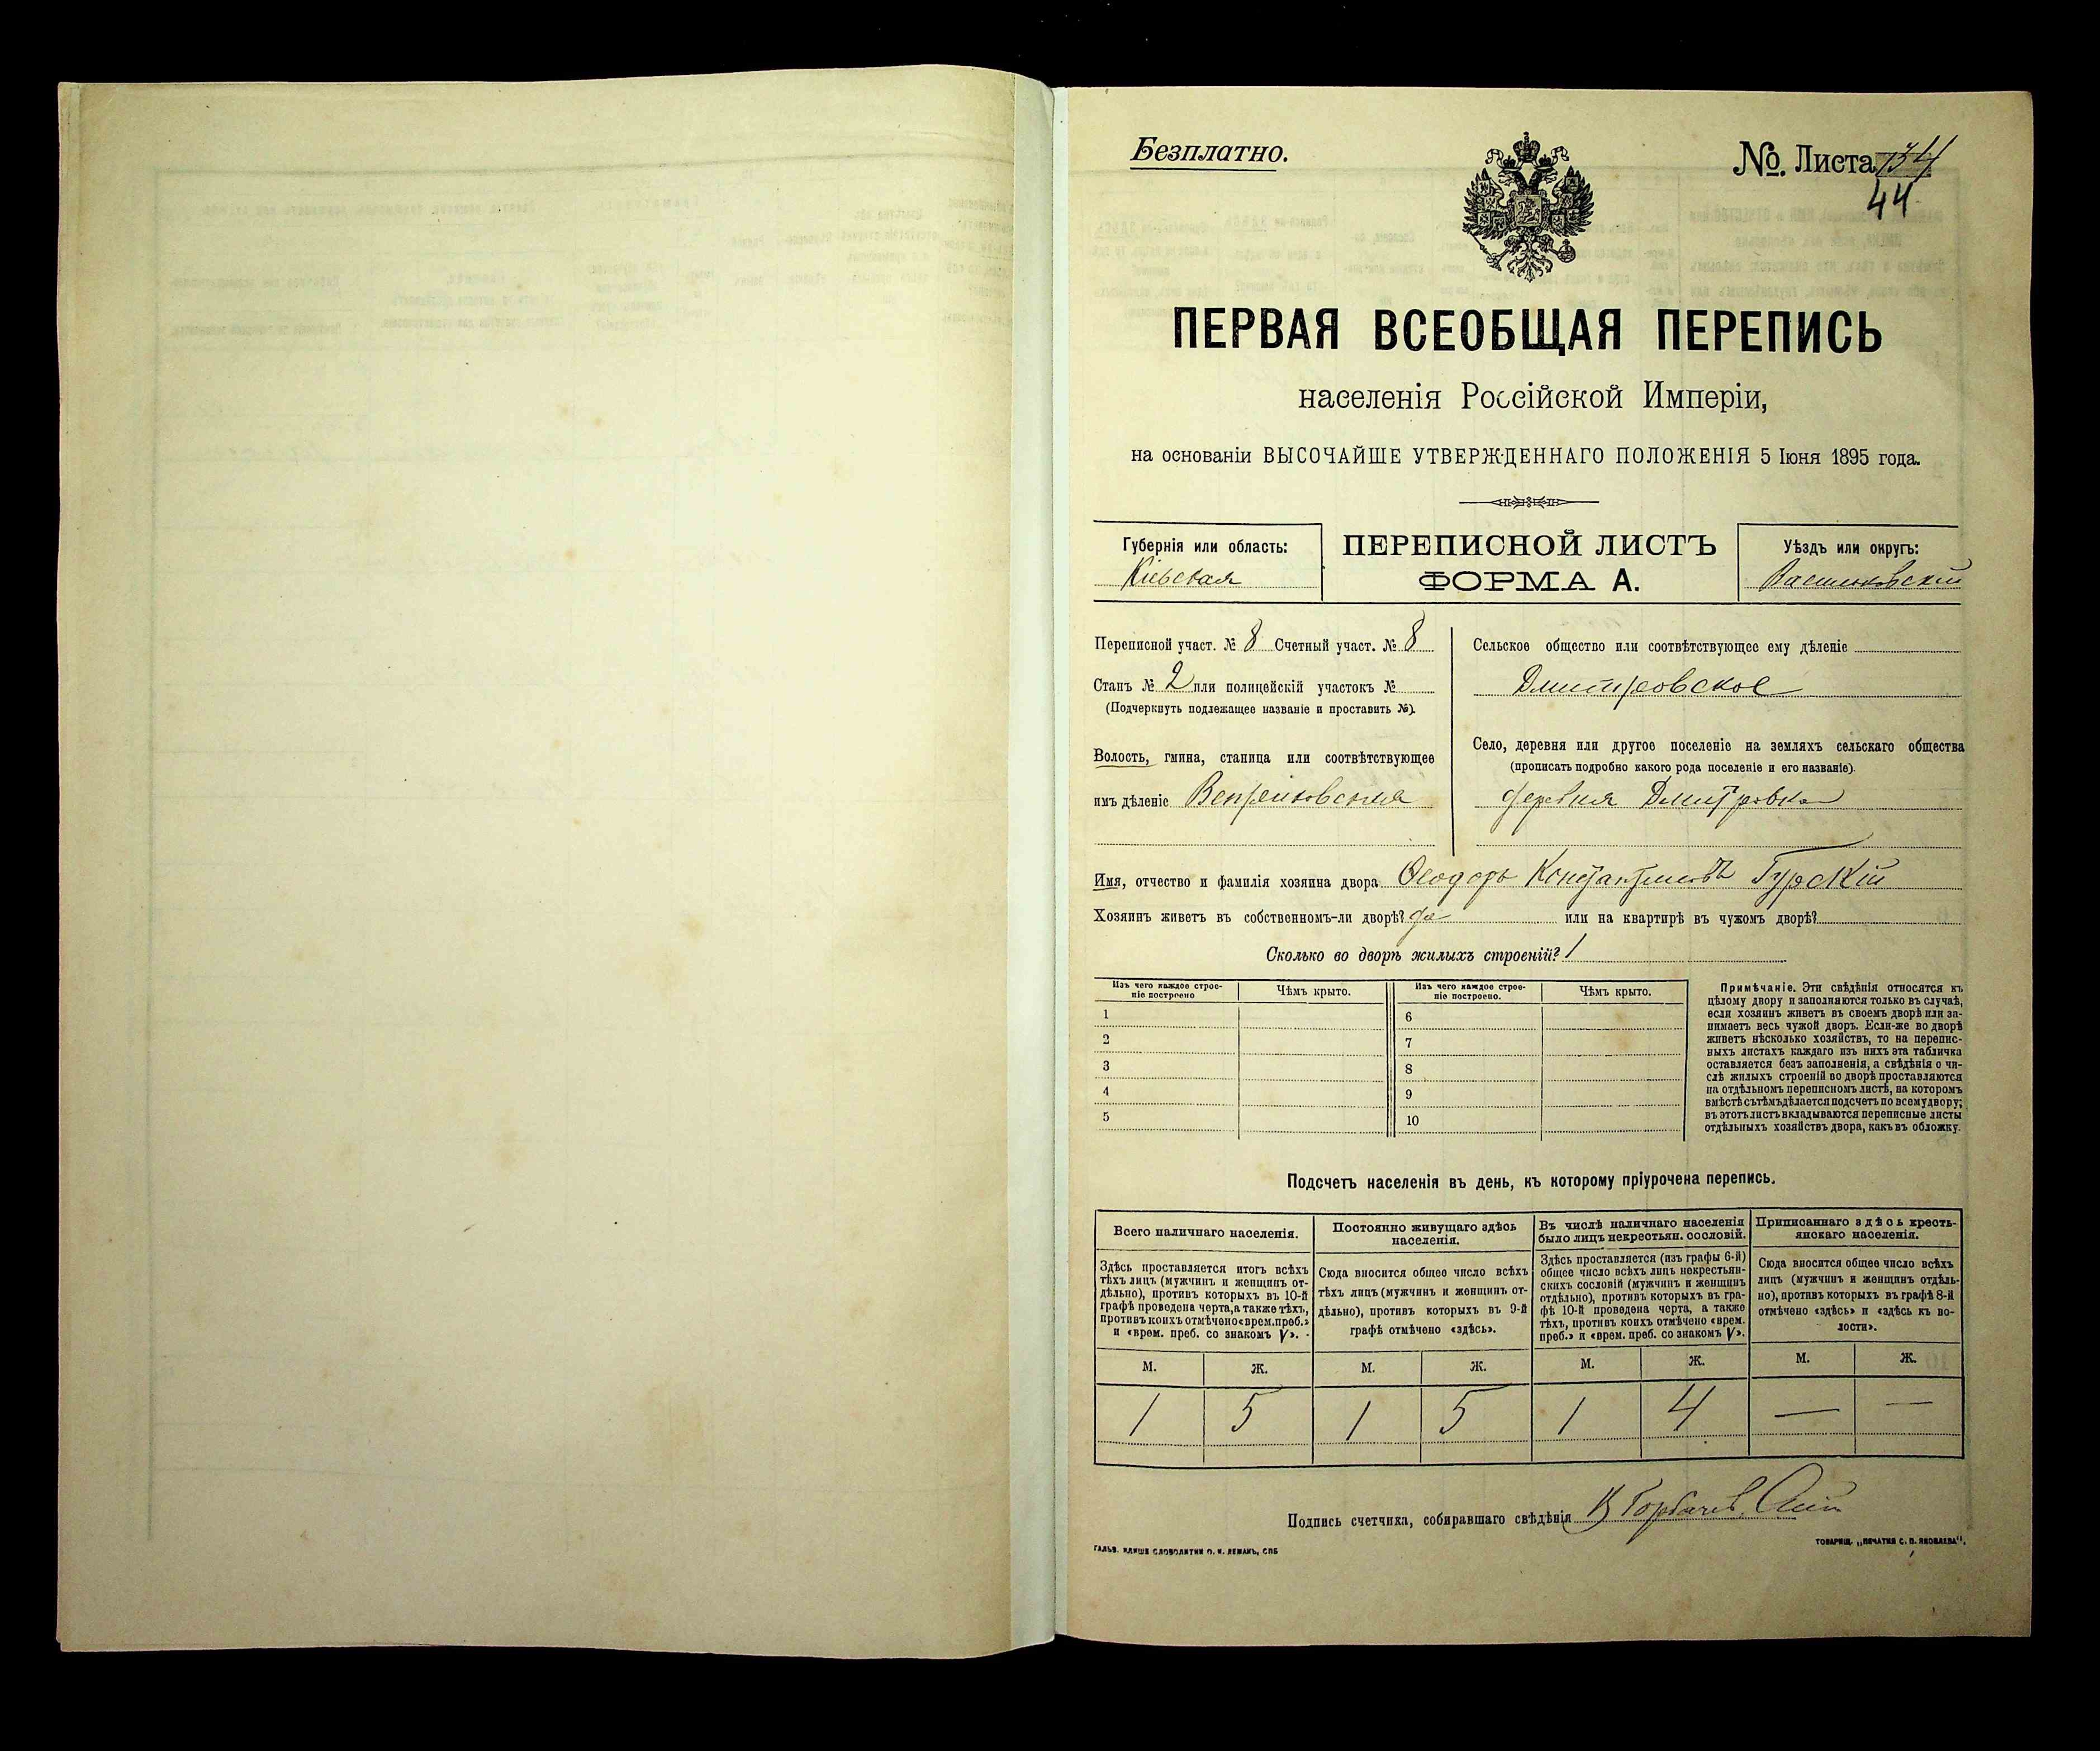 Безплатно.
№. Листа 134
44
ПЕРВАЯ ВСЕОБЩАЯ ПЕРЕПИСЬ
населенія Россійской Имперіи,
на основаніи ВЫСОЧАЙШЕ УТВЕРЖДЕННАГО ПОЛОЖЕНІЯ 5 Іюня 1895 года.
Губернія или область:
Кіевская
ПЕРЕПИСНОЙ ЛИСТЪ
ФОРМА А.
Уѣздъ или округъ:
Васильковскій
Переписной участ. № 8 Счетный участ. № 8
Станъ № 2 или полицейскій участокъ №
(Подчеркнуть подлежащее названіе и проставить №).
Волость, гмина, станица или соотвѣтствующее
имъ дѣленіе
Сельское общество или соотвѣтствующее ему дѣленіе
Дмитровское
Село, деревня или другое поселеніе на земляхъ сельскаго общества
(прописать подробно какого рода поселеніе и его названіе).
деревня Дмитровка
Имя, отчество и фамилія хозяина двора Ѳеодоръ Константиновъ Гурскій
Хозяинъ живетъ въ собственномъ-ли дворѣ? да или на квартирѣ въ чужомъ дворѣ?
Сколько во дворѣ жилыхъ строеній? 1
Изъ чего каждое строе-
ніе построено
Чѣмъ крыто.
Изъ чего каждое строе-
ніе построено.
Чѣмъ крыто.
1
2
3
4
5
6
7
8
9
10
Примѣчаніе. Эти свѣдѣнія относятся къ
цѣлому двору и заполняются только въ случаѣ,
если хозяинъ живетъ въ своемъ дворѣ или за-
нимаетъ весь чужой дворъ. Если-же во дворѣ
живетъ нѣсколько хозяйствъ, то на перепис-
ныхъ листахъ каждаго изъ нихъ эта табличка
оставляется безъ заполненія, а свѣдѣнія о чи-
слѣ жилыхъ строеній во дворѣ проставляются
на отдѣльномъ переписномъ листѣ, на которомъ
вмѣстѣ съ тѣмъ дѣлается подсчетъ по всему двору;
въ этотъ листъ вкладываются переписные листы
отдѣльныхъ хозяйствъ двора, какъ въ обложку.
Подсчетъ населенія въ день, къ которому пріурочена перепись.
Всего наличнаго населенія.
Здѣсь проставляется итогъ всѣхъ
тѣхъ лицъ (мужчинъ и женщинъ от-
дѣльно), противъ которыхъ въ 10-й
графѣ проведена черта, а также тѣхъ,
противъ коихъ отмѣчено «врем. преб.»
и «врем. преб. со знакомъ V».
Постоянно живущаго здѣсь
населенія.
Сюда вносится общее число всѣхъ
тѣхъ лицъ (мужчинъ и женщинъ от-
дѣльно), противъ которыхъ въ 9-й
графѣ отмѣчено «здѣсь».
Въ числѣ наличнаго населенія
было лицъ некрестьян. сословій.
Здѣсь проставляется (изъ графы 6-й)
общее число всѣхъ лицъ некрестьян-
скихъ сословій (мужчинъ и женщинъ
отдѣльно), противъ которыхъ въ гра-
фѣ 10-й проведена черта, а также
тѣхъ, противъ коихъ отмѣчено «врем.
преб.» и «врем. преб. со знакомъ V».
Приписаннаго здѣсь кресть-
янскаго населенія.
Сюда вносится общее число всѣхъ
лицъ (мужчинъ и женщинъ отдѣль-
но), противъ которыхъ въ графѣ 8-й
отмѣчено «здѣсь» и «здѣсь къ во-
лости».
М. Ж. М. Ж. М. Ж. М. Ж.
1 5 1 5 1 4 — —
Подпись счетчика, собиравшаго свѣдѣнія
ГАЛЬВ. КЛИШЕ СЛОВОЛИТНИ О. И. ЛЕМАНЪ, СПБ
ТОВАРИЩ. „ПЕЧАТНЯ С. П. ЯКОВЛЕВА".